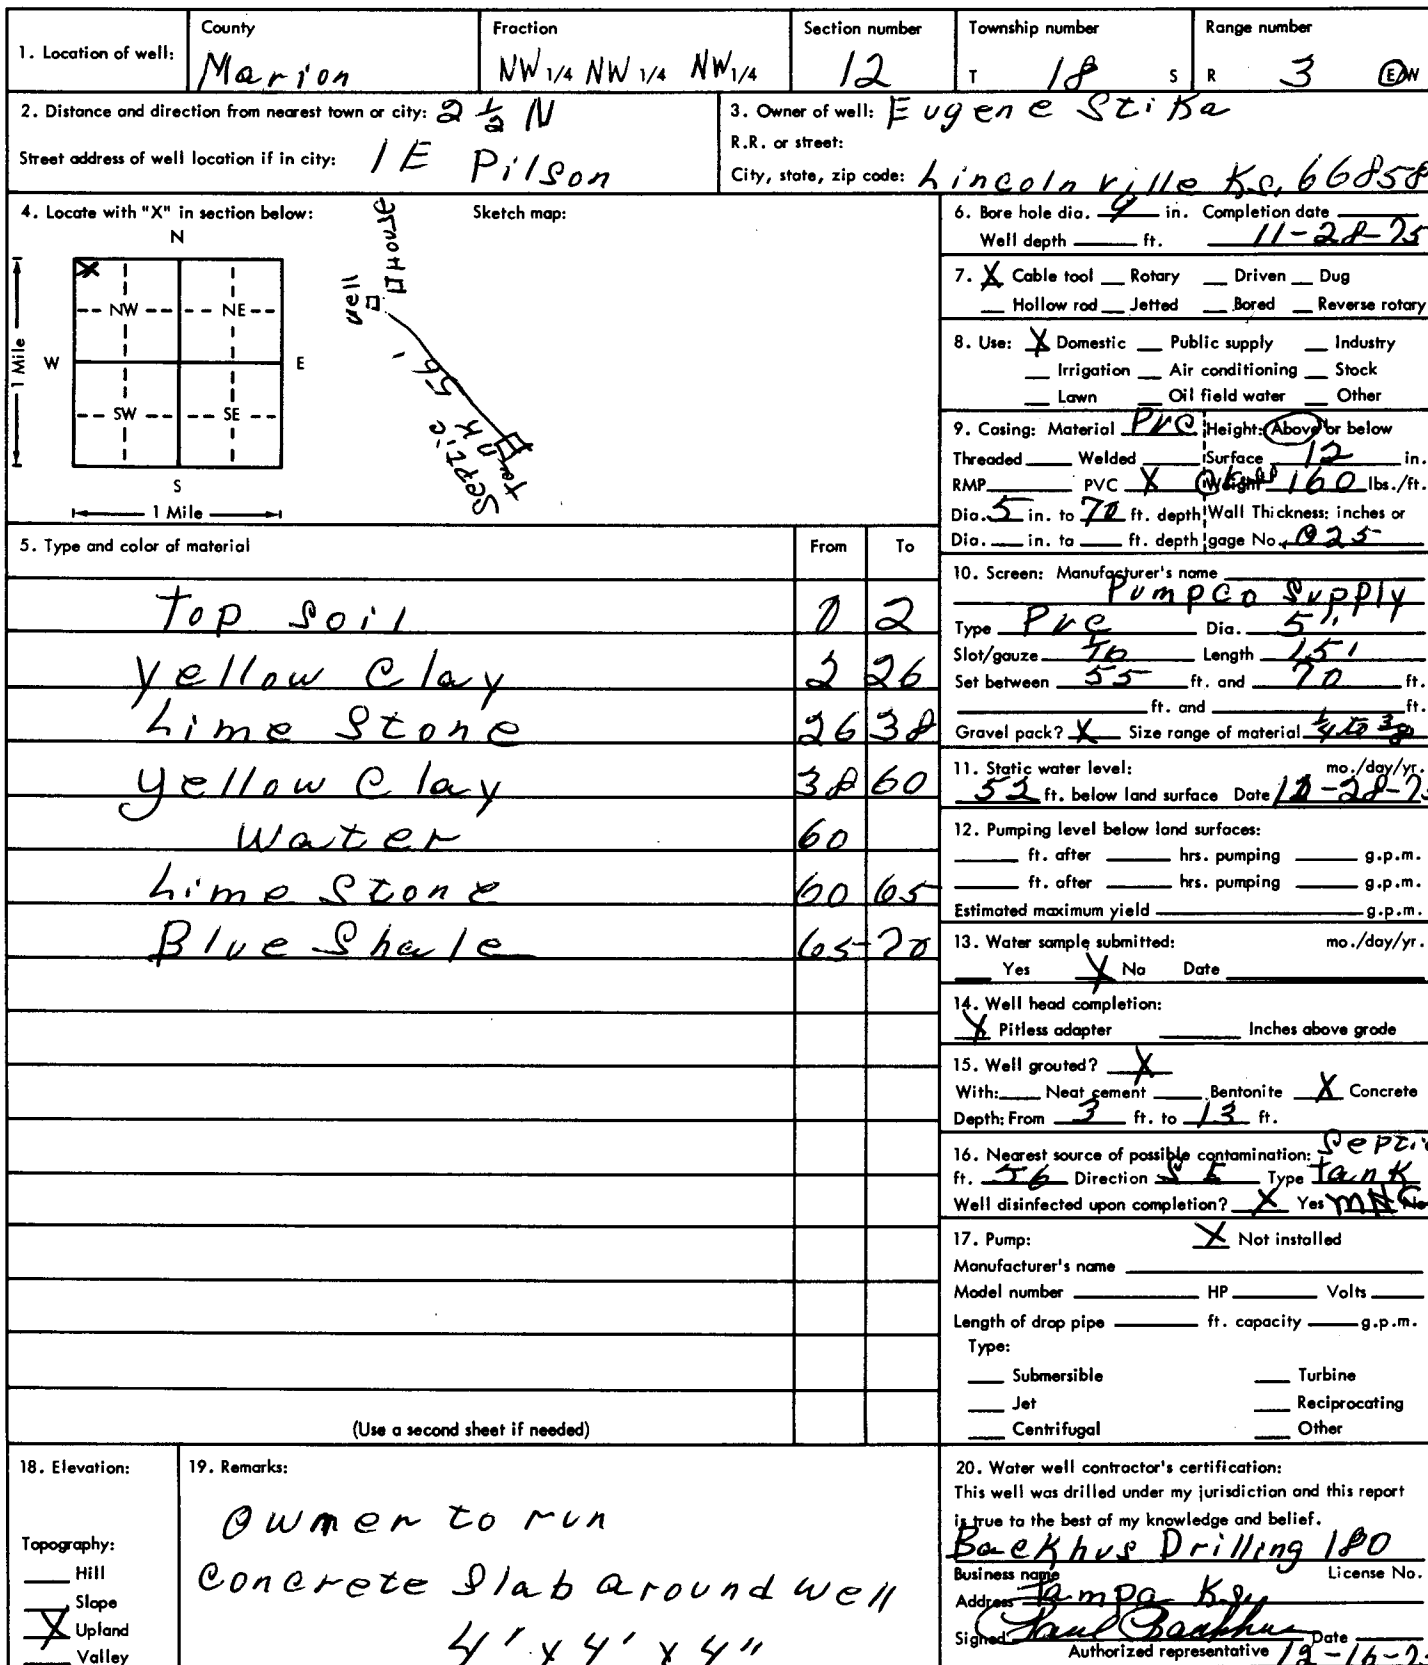 County Fraction Section number Township number Range number
1. Location of well: Marion NW 1/4 NW 1/4 NW 1/4 12 T 18 S R 3 E/W
2. Distance and direction from nearest town or city: 2 1/2 N
Street address of well location if in city: 1 E Pilson
3. Owner of well: Eugene Stika
R.R. or street:
City, state, zip code: Lincolnville Ks. 66858
4. Locate with "X" in section below: Sketch map:
N
X
NW NE
W E
SW SE
S
1 Mile
1 Mile
House
well
56'
Septic
tank
5. Type and color of material From To
Top Soil 0 2
Yellow Clay 2 26
Lime Stone 26 38
Yellow Clay 38 60
Water 60
Lime Stone 60 65
Blue Shale 65 70
(Use a second sheet if needed)
6. Bore hole dia. 9 in. Completion date
Well depth ft. 11-28-75
7. X Cable tool Rotary Driven Dug
Hollow rod Jetted Bored Reverse rotary
8. Use: X Domestic Public supply Industry
Irrigation Air conditioning Stock
Lawn Oil field water Other
9. Casing: Material PVC Height: Above or below
Threaded Welded Surface 12 in.
RMP PVC X Weight 160 lbs./ft.
Dia. 5 in. to 70 ft. depth Wall Thickness: inches or
Dia. in. to ft. depth gage No.
10. Screen: Manufacturer's name
Pumpco Supply
Type PVC Dia. 5"
Slot/gauze Length 15'
Set between 55 ft. and 70 ft.
ft. and ft.
Gravel pack? X Size range of material 1/4 to 3/8
11. Static water level: mo./day/yr.
52 ft. below land surface Date
12. Pumping level below land surfaces:
ft. after hrs. pumping g.p.m.
ft. after hrs. pumping g.p.m.
Estimated maximum yield g.p.m.
13. Water sample submitted: mo./day/yr.
Yes X No Date
14. Well head completion:
X Pitless adapter Inches above grade
15. Well grouted? X
With: Neat cement Bentonite X Concrete
Depth: From 3 ft. to 13 ft.
16. Nearest source of possible contamination: Septic
ft. 56 Direction S E Type tank
Well disinfected upon completion? X Yes No
17. Pump: X Not installed
Manufacturer's name
Model number HP Volts
Length of drop pipe ft. capacity g.p.m.
Type:
Submersible Turbine
Jet Reciprocating
Centrifugal Other
18. Elevation:
Topography:
Hill
Slope
X Upland
Valley
19. Remarks:
Owner to run
Concrete Slab around well
4' x 4' x 4"
20. Water well contractor's certification:
This well was drilled under my jurisdiction and this report
is true to the best of my knowledge and belief.
Backhus Drilling 180
Business name License No.
Address Tampa Ks.
Signed Paul Backhus Date
Authorized representative 12-16-75